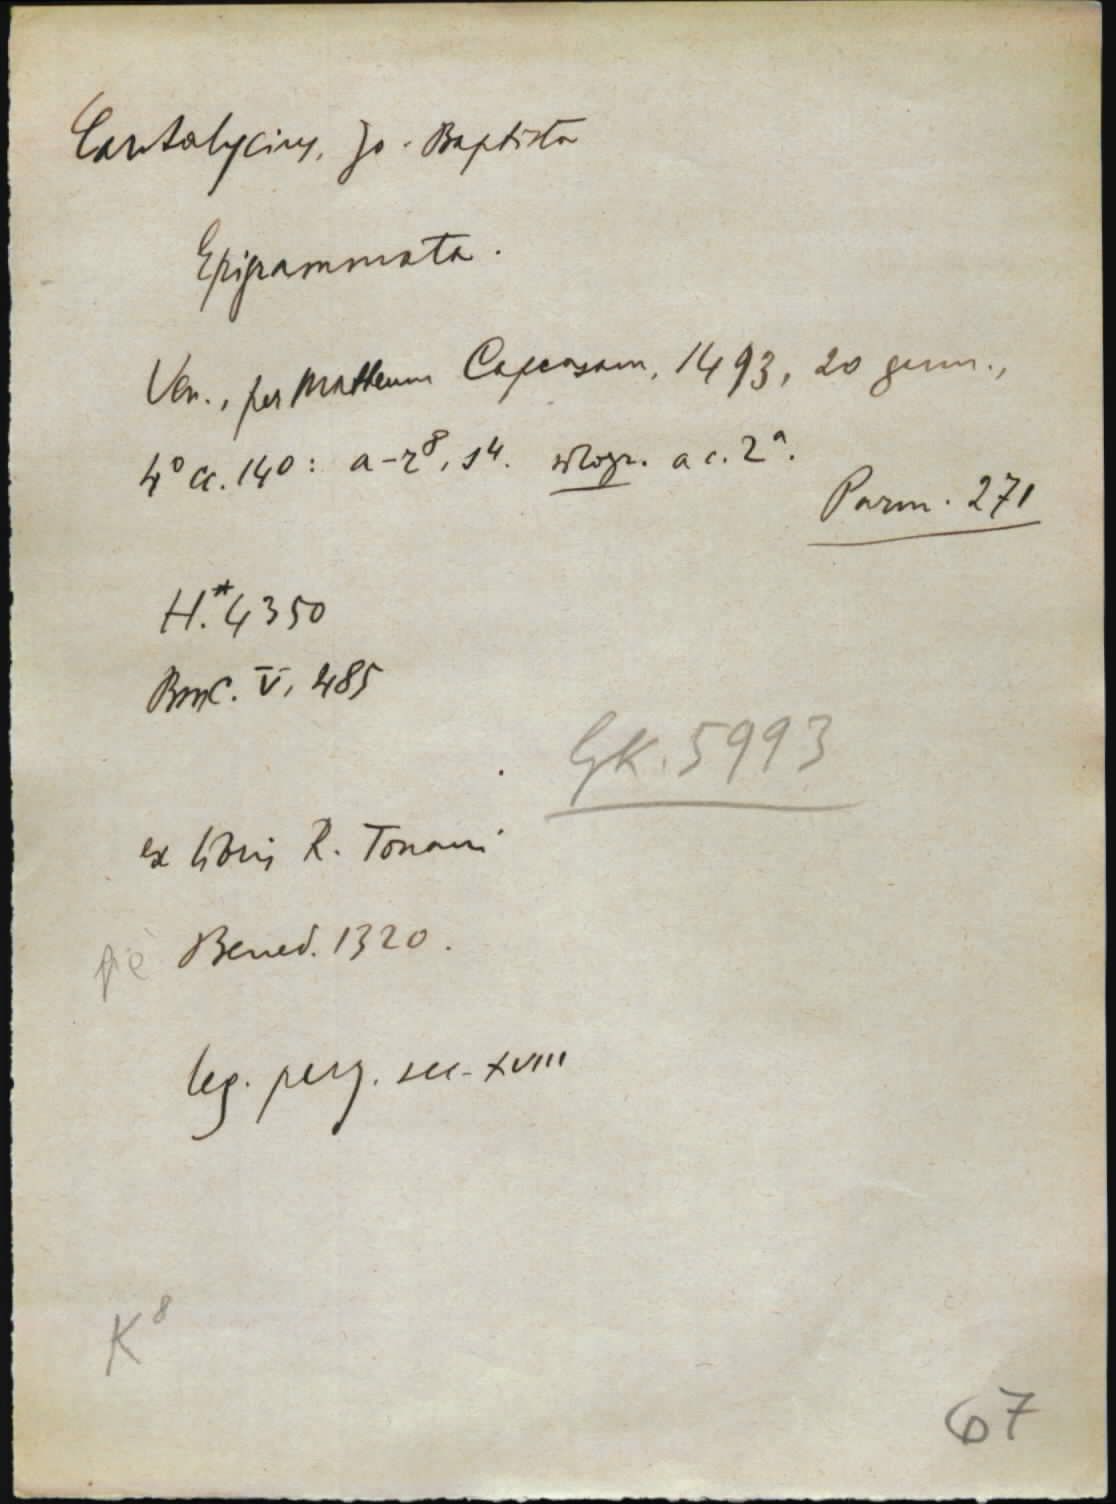 Cantalycius, Jo. Baptista
Epigrammata.
Ven., per Mattheum Capcasam, 1493, 20 genn.,
4° cc. 140: a-r⁸, s⁴. silogr. a c. 2ª.
Parm. 271
H.* 4350
BMC. V, 485
GK. 5993
ex libris R. Tonani
già Bened. 1320.
leg. perg. sec. XVIII
K⁸
67